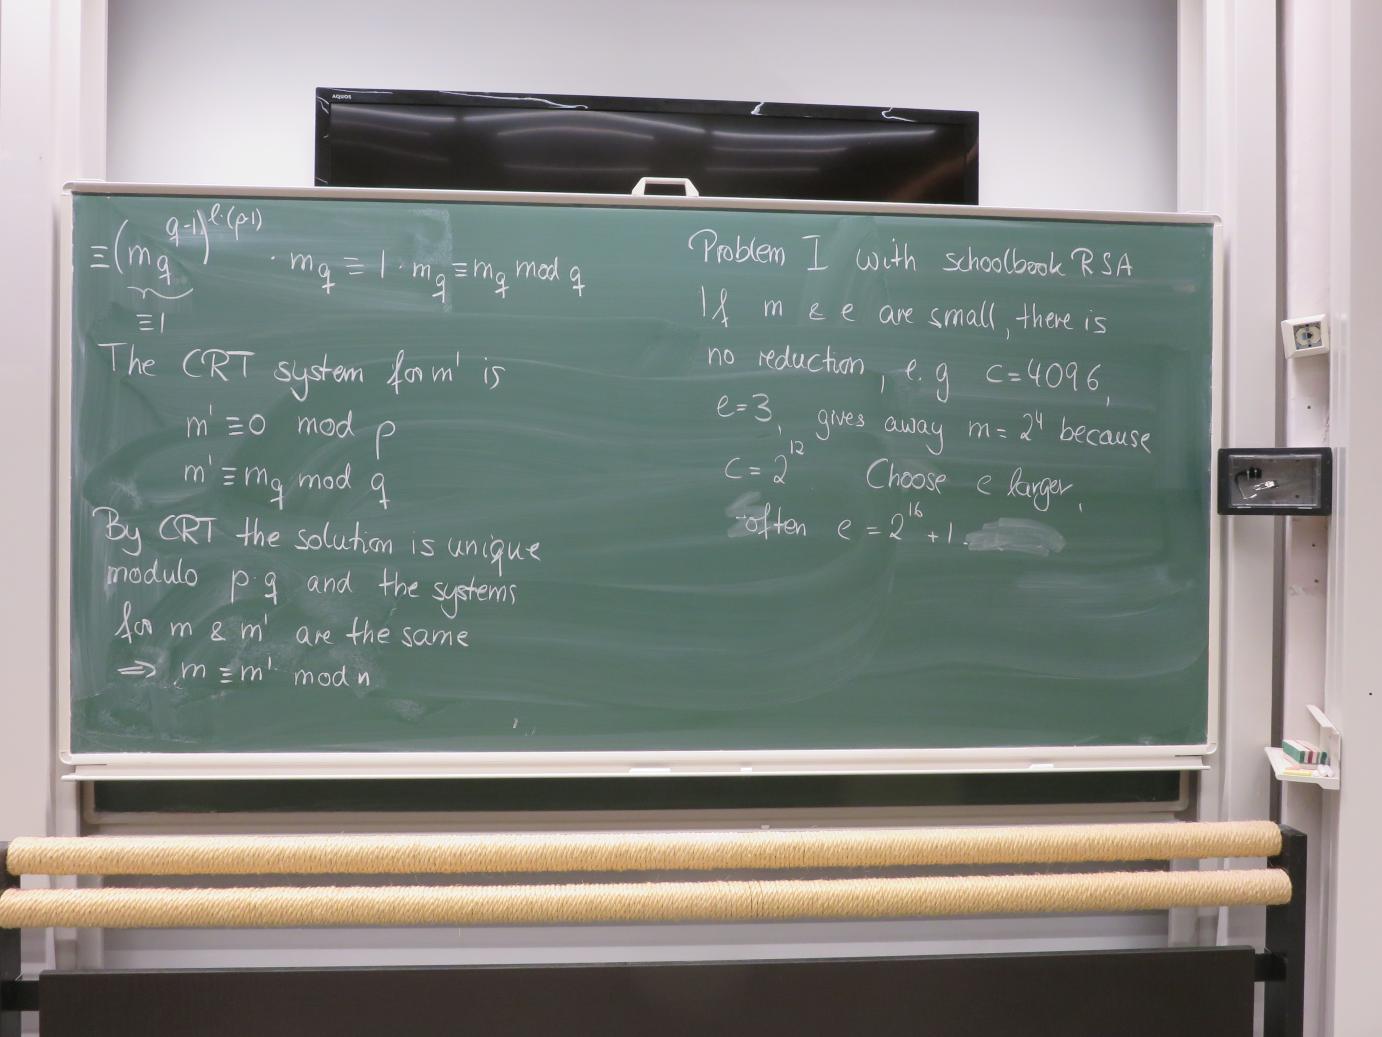 AQUOS
≡(m_q^(q-1))^(l·(p-1)) · m_q ≡ 1 · m_q ≡ m_q mod q
≡1
The CRT system for m' is
m' ≡ 0 mod p
m' ≡ m_q mod q
By CRT the solution is unique
modulo p·q and the systems
for m & m' are the same
⇒ m ≡ m' mod n
Problem I with schoolbook RSA
If m & e are small, there is
no reduction, e.g c=4096,
e=3, gives away m=2^4 because
c=2^12 Choose e larger,
often e = 2^16 + 1.